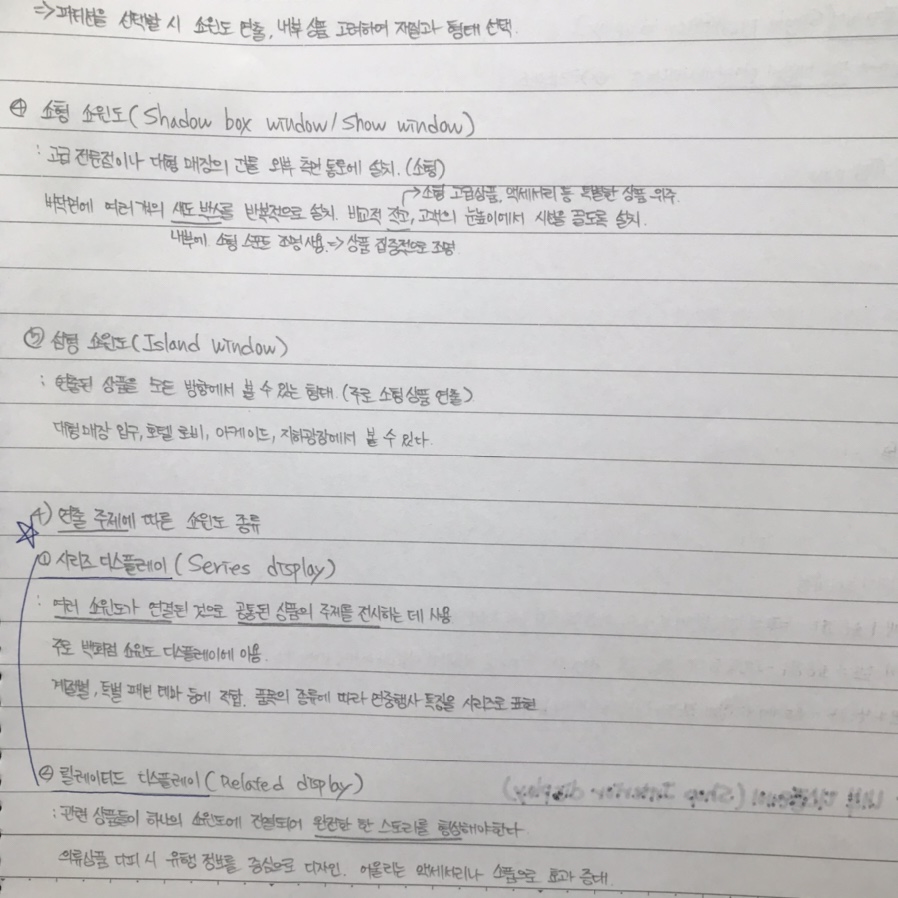 ⇒ 파티션을 선택할 시 쇼윈도 연출, 내부 상품 고려하여 재질과 형태 선택.
④ 소형 쇼윈도(Shadow box window/Show window)
: 고급 전문점이나 대형 매장의 건물 외부 측면 통로에 설치. (소형)
→소형 고급상품, 액세서리 등 특별한 상품 위주.
바닥면에 여러개의 섀도 박스를 반복적으로 설치. 비교적 작고, 고객의 눈높이에서 시선을 끌도록 설치.
내부에 소형 스포트 조명 사용. ⇒ 상품 집중적으로 조명.
⑤ 섬형 쇼윈도(Island window)
: 연출된 상품을 모든 방향에서 볼 수 있는 형태. (주로 소형상품 연출)
대형매장 입구, 호텔 로비, 아케이드, 지하광장에서 볼 수 있다.
☆ 4) 연출 주제에 따른 쇼윈도 종류
① 시리즈 디스플레이(Series display)
: 여러 쇼윈도가 연결된 것으로 공통된 상품의 주제를 전시하는 데 사용
주로 백화점 쇼윈도 디스플레이에 이용.
계절별, 특별 패션 테마 등에 적합. 품목의 종류에 따라 연중행사 특징을 시리즈로 표현
② 릴레이티드 디스플레이(Related display)
: 관련 상품들이 하나의 쇼윈도에 진열되어 완전한 한 스토리를 형상해야한다
의류상품 디피 시 유행 정보를 중심으로 디자인. 어울리는 액세서리나 소품으로 효과 증대.